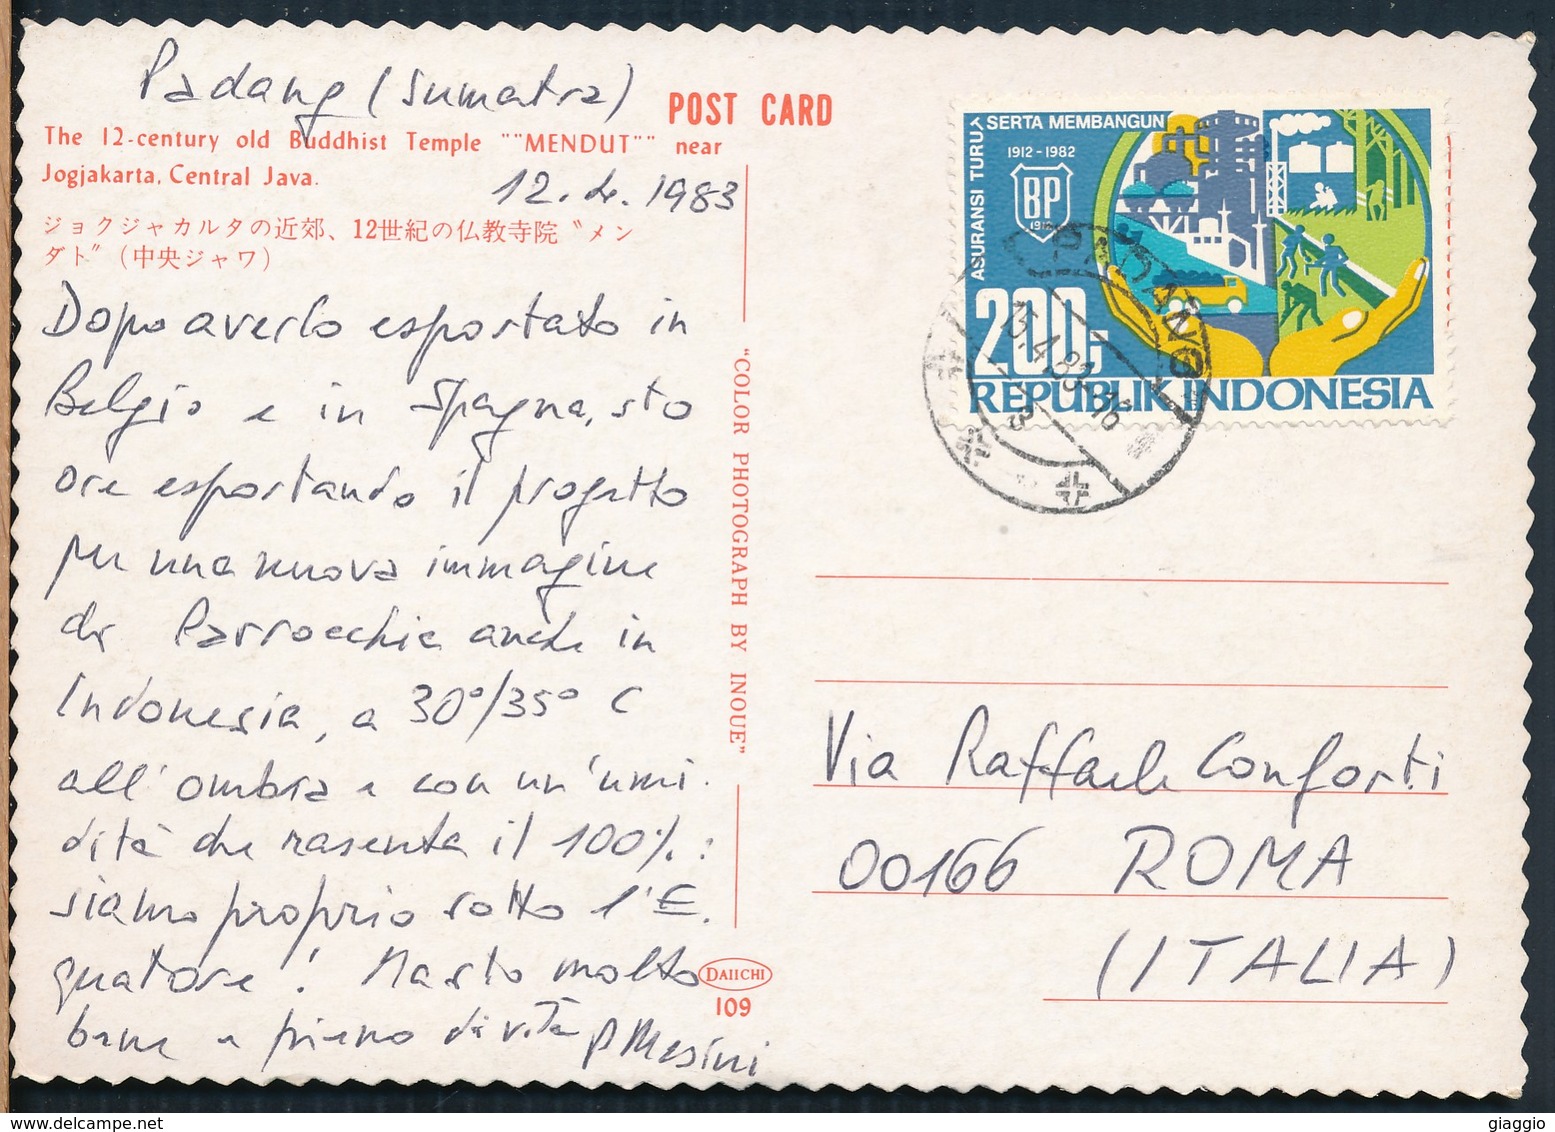 Padang (Sumatra)
POST CARD
The 12-century old Buddhist Temple ""MENDUT"" near
Jogjakarta, Central Java.
12.4.1983
ジョクジャカルタの近郊、12世紀の仏教寺院〝メン
ダト〞(中央ジャワ)
Dopo averlo esportato in
Belgio e in Spagna, sto
ore esportando il progetto
per una nuova immagine
di Parrocchie anche in
Indonesia, a 30°/35° C
all'ombra e con un'umi-
dità che rasenta il 100%:
siamo proprio sotto l'E-
quatore! Ma sto molto
bene e pieno di vita
P Masini
"COLOR PHOTOGRAPH BY INOUE"
DAIICHI
109
ASURANSI TURUT SERTA MEMBANGUN
1912-1982
BP
1912
200,-
REPUBLIK INDONESIA
PADANG
4.83-16
Via Raffaele Conforti
00166 ROMA
(ITALIA)
giaggio